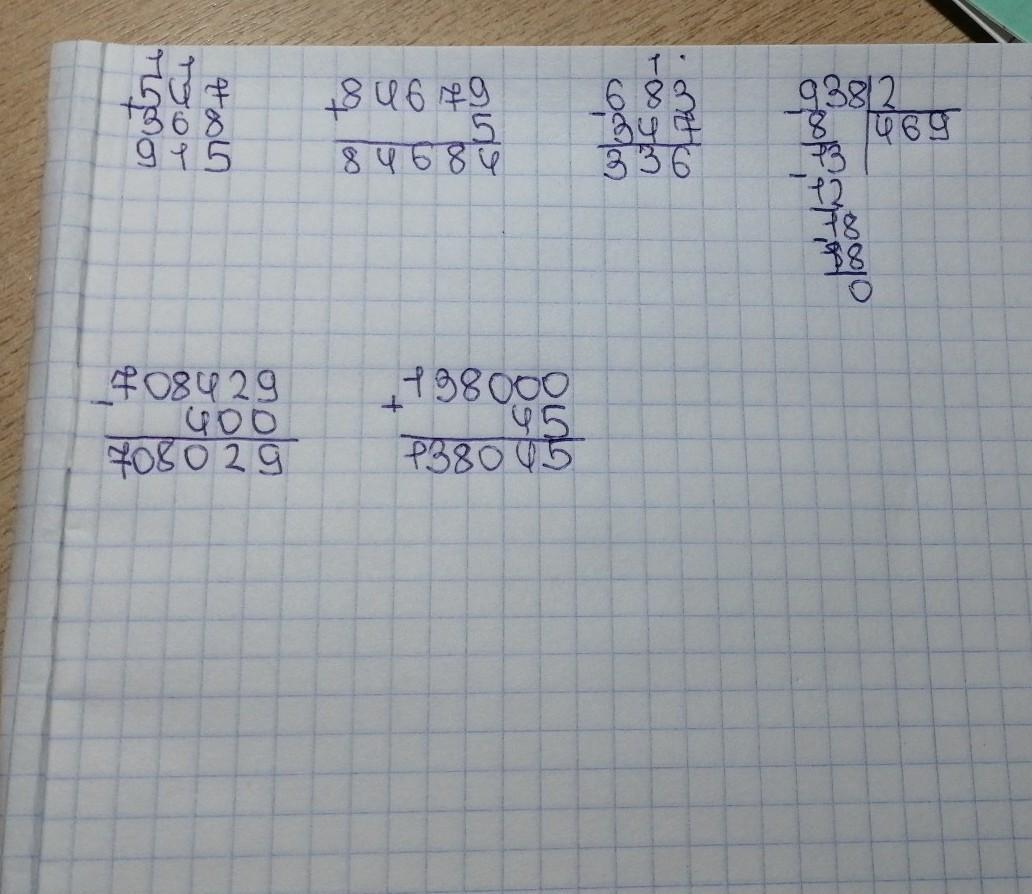 1 1 1 .
+547 +84679 -683 -938|2
368 5 347 8 469
915 84684 336 -13
12
-18
18
0
-708429 +138000
400 45
708029 138045